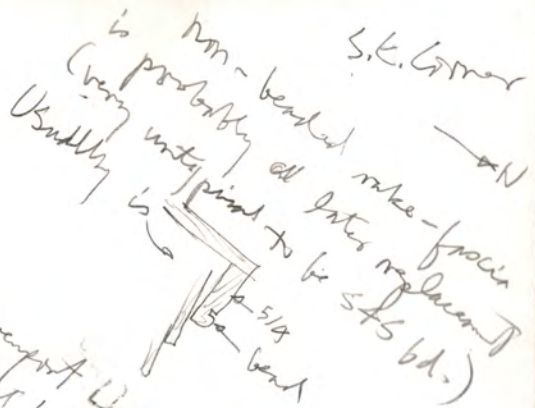 S.E. Corner
N
is non-beaded rake-fascia
is probably a later replacement
(very untypical to be S4S bd.)
Usually is
5/4
bead